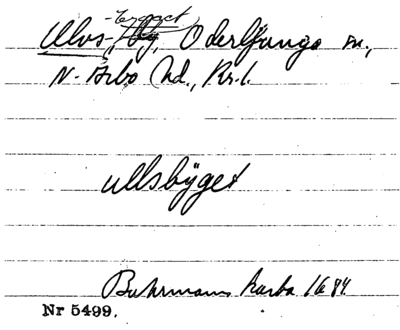 -torpet
Ulvs-, by, Oderljunga sn.,
N. Åsbo hd., Kr.l.
ullsbÿget
Buhrmans karta 1684
Nr 5499.